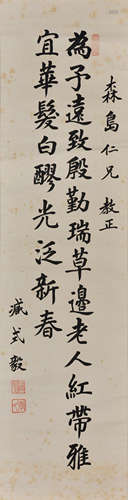 森島仁兄 教正
為予遠致殷勤瑞草邊老人紅帶雅
宜華髮白醪光泛新春
臧式毅